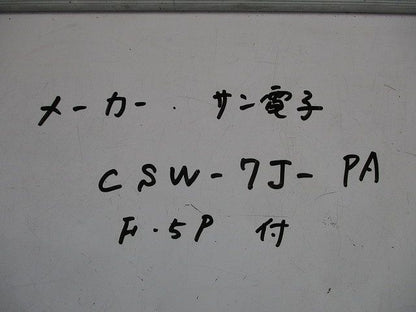 メーカー．サン電子
CSW-7J-PA
F.5P 付